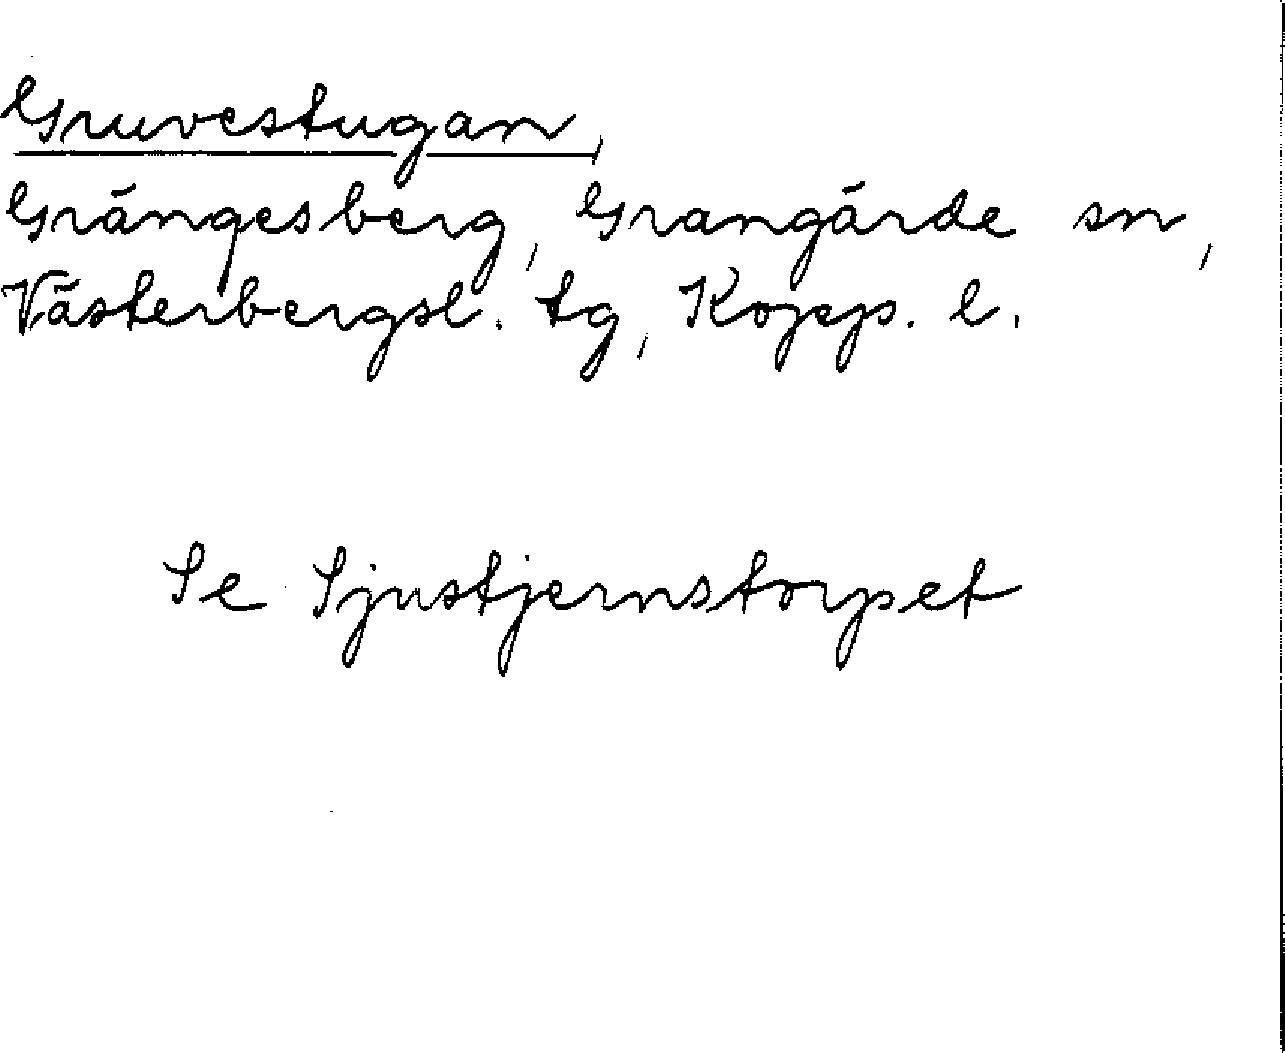 Gruvestugan,
Grängesberg, Grangärde sn,
Västerbergsl. tg, Kopp. l.
Se Sjustjernstorpet